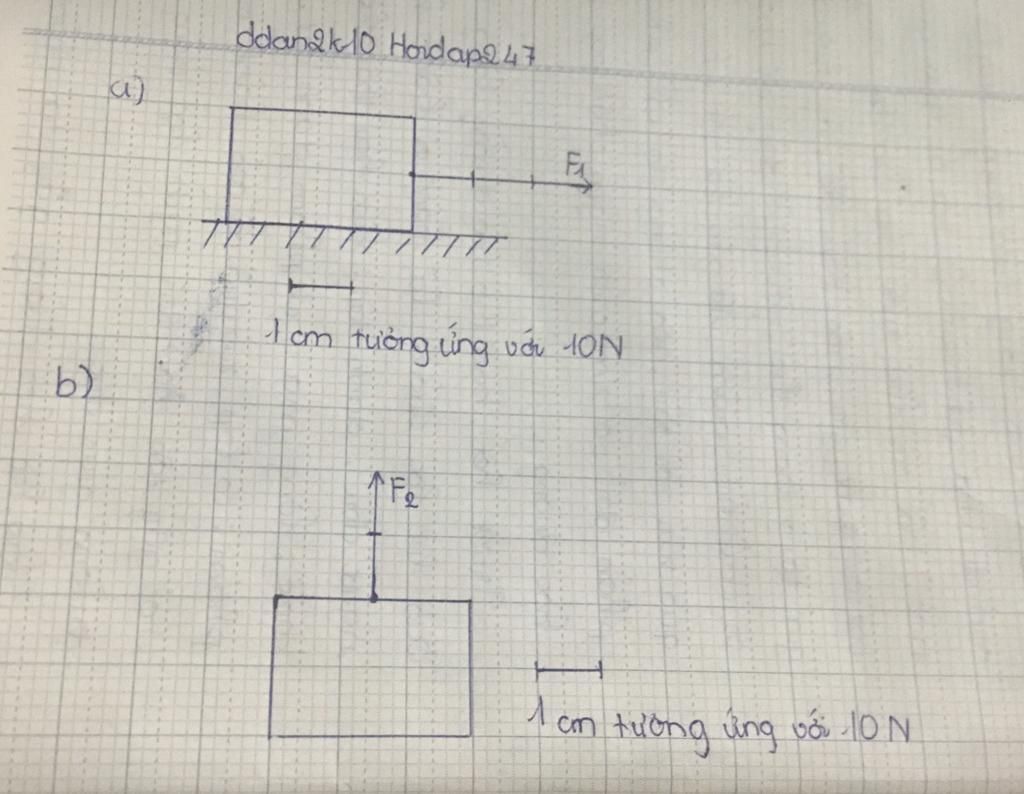 ddan2k10 Hoidap247
a)
F1
1 cm tương ứng với 10N
b)
F2
1 cm tương ứng với 10 N